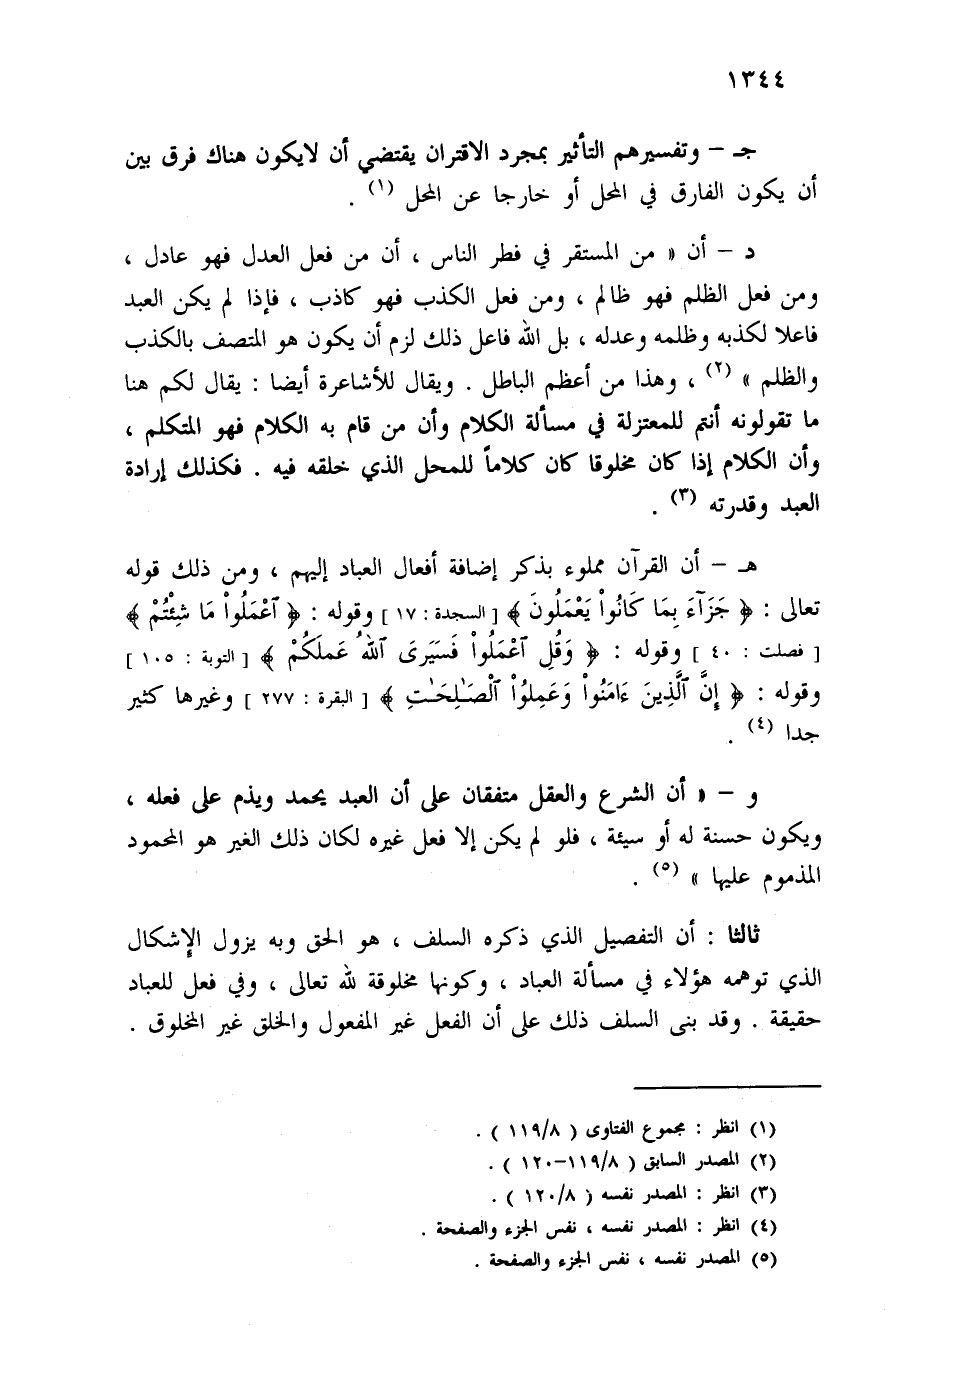 ١٣٤٤
جـ – وتفسيرهم التأثير بمجرد الاقتران يقتضي أن لايكون هناك فرق بين
أن يكون الفارق في المحل أو خارجا عن المحل (١) .
د – أن « من المستقر في فطر الناس ، أن من فعل العدل فهو عادل ،
ومن فعل الظلم فهو ظالم ، ومن فعل الكذب فهو كاذب ، فإذا لم يكن العبد
فاعلا لكذبه وظلمه وعدله ، بل الله فاعل ذلك لزم أن يكون هو المتصف بالكذب
والظلم » (٢) ، وهذا من أعظم الباطل . ويقال للأشاعرة أيضا : يقال لكم هنا
ما تقولونه أنتم للمعتزلة في مسألة الكلام وأن من قام به الكلام فهو المتكلم ،
وأن الكلام إذا كان مخلوقا كان كلاماً للمحل الذي خلقه فيه . فكذلك إرادة
العبد وقدرته (٣) .
هـ – أن القرآن مملوء بذكر إضافة أفعال العباد إليهم ، ومن ذلك قوله
تعالى : ﴿ جَزَآءَ بِمَا كَانُواْ يَعْمَلُونَ ﴾ [ السجدة : ١٧ ] وقوله : ﴿ ٱعْمَلُواْ مَا شِئْتُمْ ﴾
[ فصلت : ٤٠ ] وقوله : ﴿ وَقُلِ ٱعْمَلُواْ فَسَيَرَى ٱللَّهُ عَمَلَكُمْ ﴾ [ التوبة : ١٠٥ ]
وقوله : ﴿ إِنَّ ٱلَّذِينَ ءَامَنُواْ وَعَمِلُواْ ٱلْصَّـٰلِحَـٰتِ ﴾ [ البقرة : ٢٧٧ ] وغيرها كثير
جدا (٤) .
و – « أن الشرع والعقل متفقان على أن العبد يحمد ويذم على فعله ،
ويكون حسنة له أو سيئة ، فلو لم يكن إلا فعل غيره لكان ذلك الغير هو المحمود
المذموم عليها » (٥) .
ثالثا : أن التفصيل الذي ذكره السلف ، هو الحق وبه يزول الإشكال
الذي توهمه هؤلاء في مسألة العباد ، وكونها مخلوقة لله تعالى ، وفي فعل للعباد
حقيقة . وقد بنى السلف ذلك على أن الفعل غير المفعول والخلق غير المخلوق .
(١) انظر : مجموع الفتاوى ( ١١٩/٨ ) .
(٢) المصدر السابق ( ١١٩/٨–١٢٠ ) .
(٣) انظر : المصدر نفسه ( ١٢٠/٨ ) .
(٤) انظر : المصدر نفسه ، نفس الجزء والصفحة .
(٥) المصدر نفسه ، نفس الجزء والصفحة .